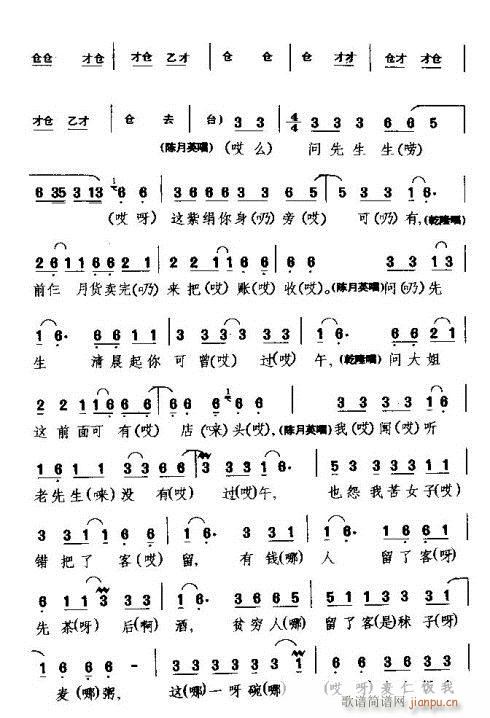 仓仓 才仓 | 才仓 乙才 | 仓 仓 | 仓 才才 | 仓才 才仓 |
才仓 乙才 | 仓 去 | 台) 3 3 | 4/4 3 3 3 6 6 5 |
(陈月英唱) (哎么) 问先生生(唠)
6 35 3 13 6 6 | 3 6 6 6 3 3 6 5 | 3 3 3 1 6· |
(哎呀) 这紫绢你身(乃)旁(哎) 可(乃)有,(乾隆唱)
2 6 1 1 6 6 2 1 | 2 2 1 1 6 1 6 | 3 3 1 3 |
前仨 月货卖完(乃)来把(哎)账(哎)收(哎)。(陈月英唱)问(乃)先
1 6· 6 6 1 1 | 6 1 6 3 1 6· | 6 6 2 1 |
生 清晨起你可曾(哎) 过(哎)午,(乾隆唱)问大姐
2 2 1 1 6 6 6 | 6 6 2 6 6 | 3 3 3 3 1 6 |
这前面可有(哎) 店(唻)头(哎),(陈月英唱)我(哎)闻(哎)听
1 6 1 6 6 3 | 3 3 1 6· | 3 3 3 3 1 1 |
老先生(唻)没 有(哎) 过(哎)午, 也怨我苦女子(哎)
3 3 1 1 6 6 | 6 3 3 1 | 1 6 6 6 1 |
错把了 客(哎)留, 有钱(哪) 人 留了客(呀)
6 1 1 3 3 3 | 1 6· 6 6 1 | 6 1 1 3 3 3 |
先茶(呀) 后(啊)酒, 贫穷人(哪) 留了客(是)秫子(呀)
1 6· 6 6 | 3 3 3 3 3 1
麦(哪)粥, 这(哪)一呀碗(哪) (哎 呀)麦仁饭我
歌谱简谱网
jianpu.cn